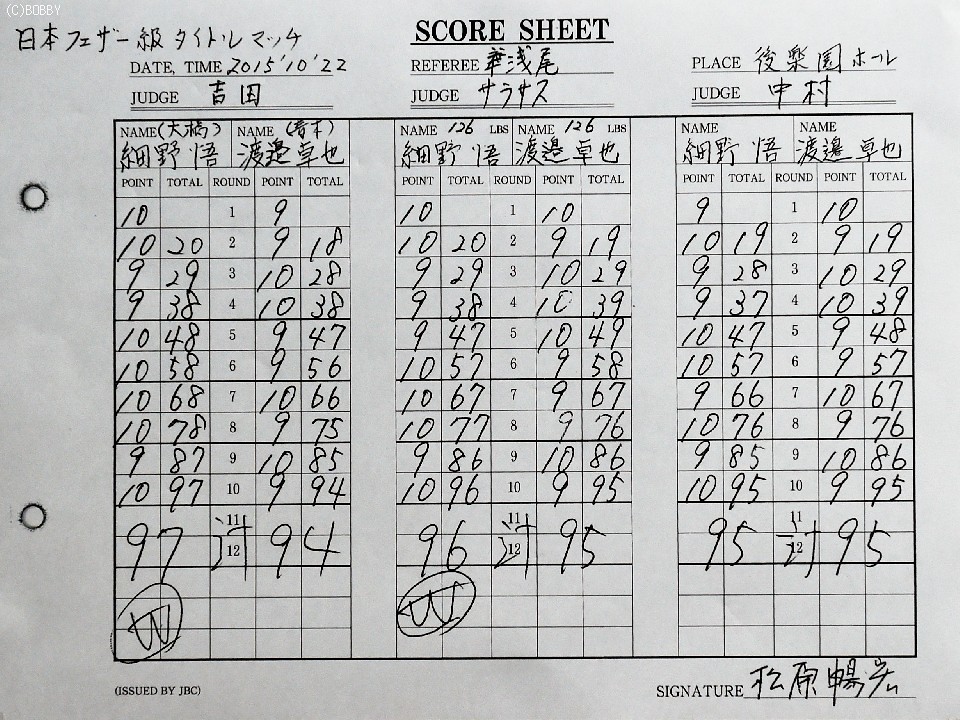 (C)BOBBY
日本フェザー級タイトルマッチ
SCORE SHEET
DATE, TIME 2015'10'22 REFEREE 浅尾 PLACE 後楽園ホール
JUDGE 吉田 JUDGE サラサス JUDGE 中村
NAME (大橋) NAME (青木) NAME 126 LBS NAME 126 LBS NAME NAME
細野 悟 渡邉卓也 細野 悟 渡邉卓也 細野 悟 渡邉卓也
POINT TOTAL ROUND POINT TOTAL POINT TOTAL ROUND POINT TOTAL POINT TOTAL ROUND POINT TOTAL
10 1 9 10 1 10 9 1 10
10 20 2 9 18 10 20 2 9 19 10 19 2 9 19
9 29 3 10 28 9 29 3 10 29 9 28 3 10 29
9 38 4 10 38 9 38 4 10 39 9 37 4 10 39
10 48 5 9 47 9 47 5 10 49 10 47 5 9 48
10 58 6 9 56 10 57 6 9 58 10 57 6 9 57
10 68 7 10 66 10 67 7 9 67 9 66 7 10 67
10 78 8 9 75 10 77 8 9 76 10 76 8 9 76
9 87 9 10 85 9 86 9 10 86 9 85 9 10 86
10 97 10 9 94 10 96 10 9 95 10 95 10 9 95
11 11 11
97 計 94 96 計 95 95 計 95
12 12 12
W W
(ISSUED BY JBC) SIGNATURE 松原暢宏